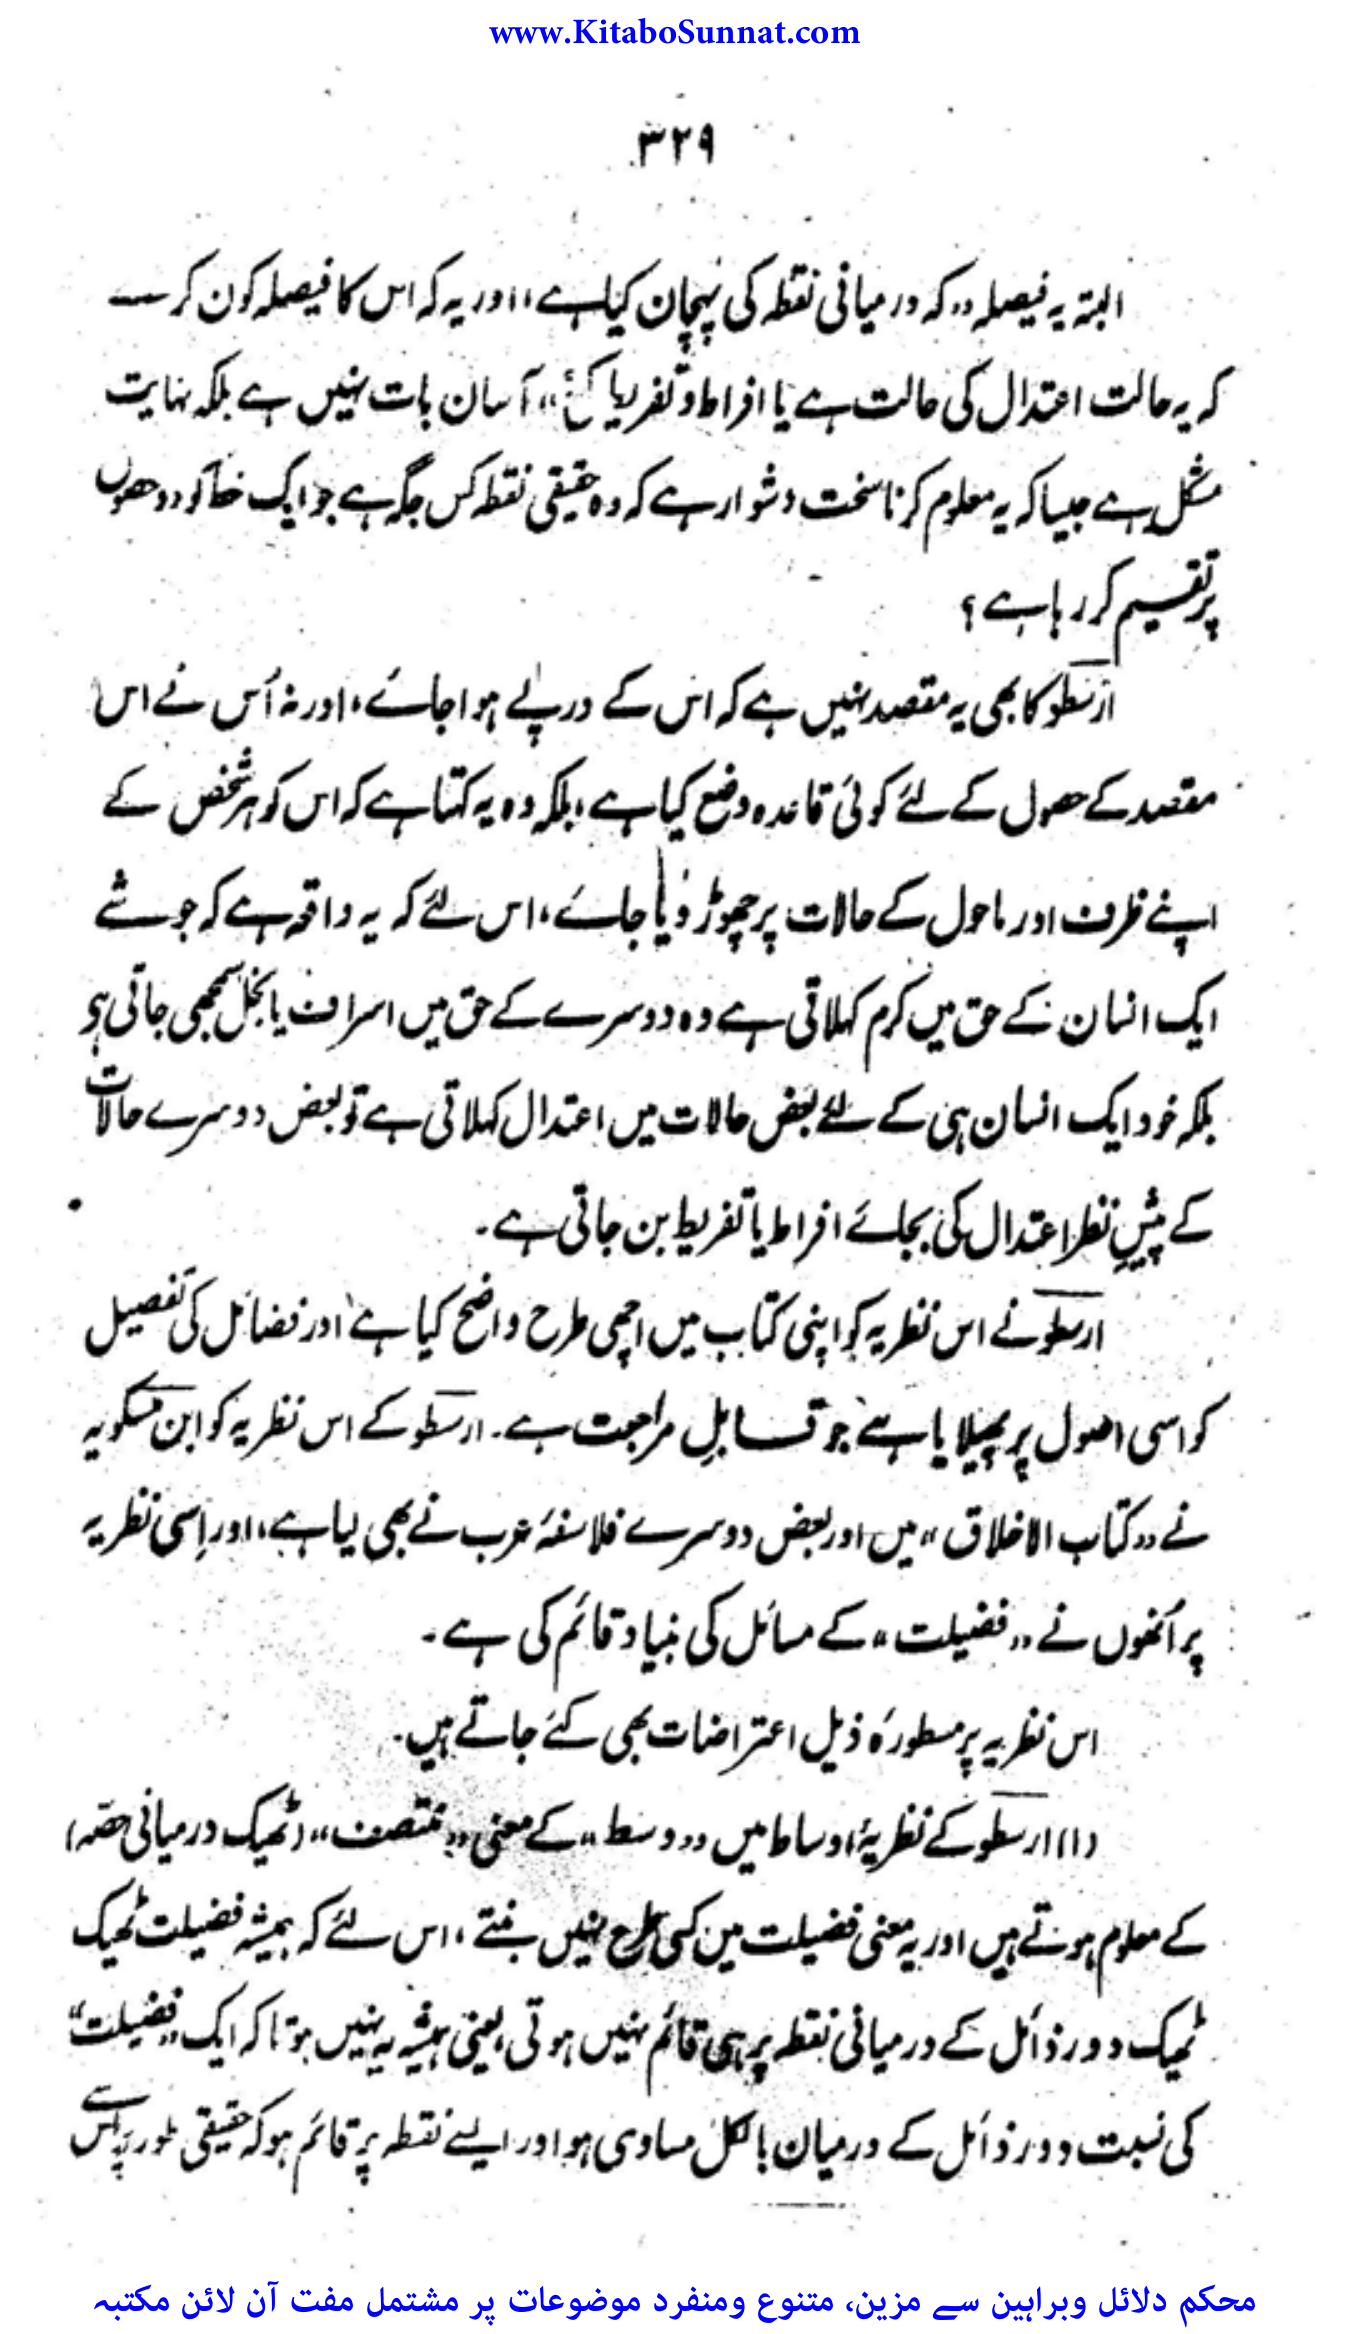 www.KitaboSunnat.com
۳۲۹
البتہ یہ فیصلہ "کہ درمیانی نقطہ کی پہچان کیا ہے، اور یہ کہ اس کا فیصلہ کون کرے
کہ یہ حالت اعتدال کی حالت ہے یا افراط و تفریط کی" آسان بات نہیں ہے بلکہ نہایت
مشکل ہے جیسا کہ یہ معلوم کرنا سخت دشوار ہے کہ وہ حقیقی نقطہ کس جگہ ہے جو ایک خط کو دو حصوں
پر تقسیم کر رہا ہے؟
ارسطو کا بھی یہ مقصد نہیں ہے کہ اس کے درپے ہوا جائے، اور نہ اُس نے اس
مقصد کے حصول کے لئے کوئی قاعدہ وضع کیا ہے، بلکہ وہ یہ کہتا ہے کہ اس کو ہر شخص کے
اپنے ظرف اور ماحول کے حالات پر چھوڑ دیا جائے، اس لئے کہ یہ واقعہ ہے کہ جو شے
ایک انسان کے حق میں کرم کہلاتی ہے وہ دوسرے کے حق میں اسراف یا بخل سمجھی جاتی ہو
بلکہ خود ایک انسان ہی کے لئے بعض حالات میں اعتدال کہلاتی ہے تو بعض دوسرے حالات
کے پیشِ نظر اعتدال کی بجائے افراط یا تفریط بن جاتی ہے۔
ارسطو نے اس نظریہ کو اپنی کتاب میں اچھی طرح واضح کیا ہے اور فضائل کی تفصیل
کو اسی اصول پر پھیلایا ہے جو قابلِ مراجعت ہے۔ ارسطو کے اس نظریہ کو ابن مسکویہ
نے "کتاب الاخلاق" میں اور بعض دوسرے فلاسفۂ عرب نے بھی لیا ہے، اور اِسی نظریہ
پر اُنھوں نے "فضیلت" کے مسائل کی بنیاد قائم کی ہے۔
اس نظریہ پر مسطورۂ ذیل اعتراضات بھی کئے جاتے ہیں۔
(۱) ارسطو کے نظریۂ اوساط میں "وسط" کے معنی "منتصف" (ٹھیک درمیانی حصّہ)
کے معلوم ہوتے ہیں اور یہ معنی فضیلت میں کسی طرح نہیں بنتے، اس لئے کہ ہمیشہ فضیلت ٹھیک
ٹھیک دو رذائل کے درمیانی نقطہ پر ہی قائم نہیں ہوتی، یعنی ہمیشہ یہ نہیں ہوتا کہ ایک "فضیلت"
کی نسبت دو رذائل کے درمیان بالکل مساوی ہو اور ایسے نقطہ پر قائم ہو کہ حقیقی طور پر اس سے
محکم دلائل وبراہین سے مزین، متنوع ومنفرد موضوعات پر مشتمل مفت آن لائن مکتبہ